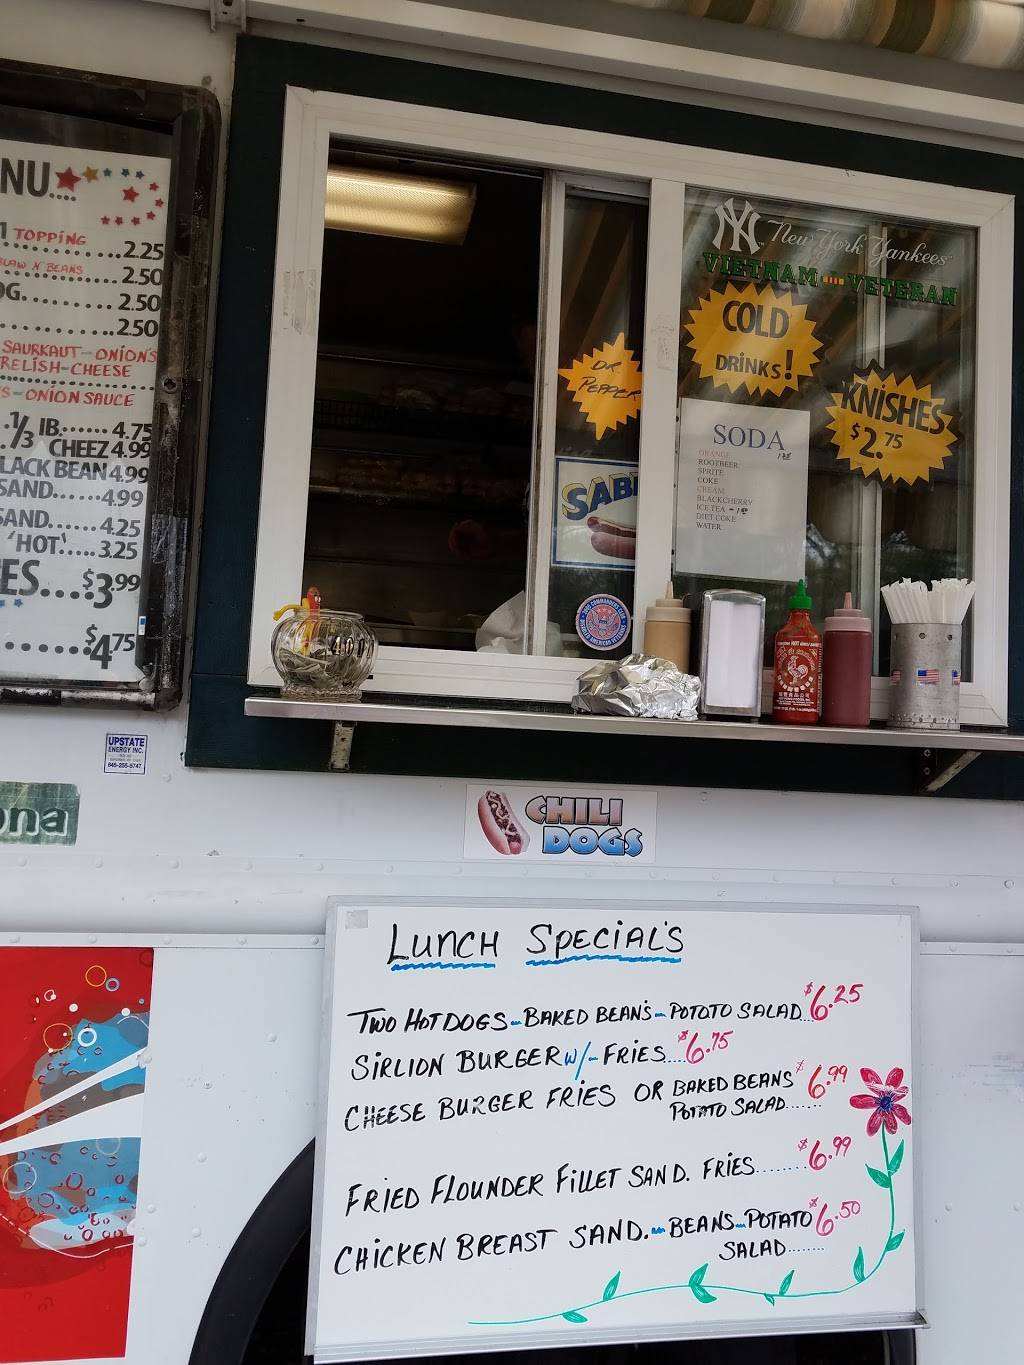 NU....
1 TOPPING
.......2.25
SLAW N' BEANS
.......2.50
OG.........2.50
.......2.50
SAURKAUT-ONION'S
RELISH-CHEESE
S-ONION SAUCE
1/3 lB.......4.75
CHEEZ 4.99
LACK BEAN 4.99
SAND......4.99
SAND......4.25
'HOT'.....3.25
ES....$3.99
......$4.75
NY New York Yankees
VIETNAM VETERAN
COLD
DRINKS!
DR.
PEPPER
KNISHES
$2.75
SODA
ORANGE
ROOTBEER
SPRITE
COKE
CREAM
BLACKCHERRY
ICE TEA
DIET COKE
WATER
SAB
UPSTATE
ENERGY INC.
845-255-8747
ona
CHILI
DOGS
LUNCH SPECIAL'S
TWO HOTDOGS-BAKED BEAN'S-POTOTO SALAD..$6.25
SIRLION BURGER W/-FRIES....$6.75
CHEESE BURGER FRIES OR BAKED BEANS $6.99
POTATO SALAD......
FRIED FLOUNDER FILLET SAND. FRIES........$6.99
CHICKEN BREAST SAND.-BEANS-POTATO $6.50
SALAD........